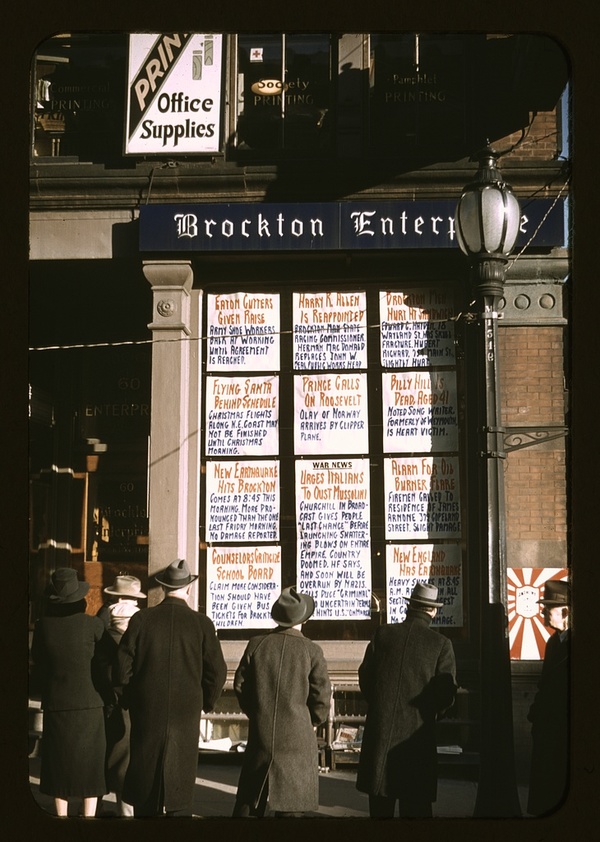 PRIN
Office
Supplies
PRINTING
Society
PRINTING
Pamphlet
PRINTING
Brockton Enterp e
EATON CUTTERS
GIVEN RAISE
ARMY SHOE WORKERS
BACK AT WORKING
UNTIL AGREEMENT
IS REACHED.
HARRY R. ALLEN
IS REAPPOINTED
BROCKTON MAN STATE
RACING COMMISSIONER
HERMAN MACDONALD
REPLACES JOHN W.
HURT
WAYLAND ST. HAS SKULL
FRACTURE. HUBERT
RICHARD, MAIN ST.
SLIGHTLY HURT.
FLYING SANTA
BEHIND SCHEDULE
CHRISTMAS FLIGHTS
ALONG N.E. COAST MAY
NOT BE FINISHED
UNTIL CHRISTMAS
MORNING.
PRINCE CALLS
ON ROOSEVELT
OLAV OF NORWAY
ARRIVES BY CLIPPER
PLANE.
BILLY HILL IS
DEAD, AGED 41
NOTED SONG WRITER,
FORMERLY OF WEYMOUTH,
IS HEART VICTIM.
NEW EARTHQUAKE
HITS BROCKTON
COMES AT 8:45 THIS
MORNING. MORE PRO-
NOUNCED THAN THE ONE
LAST FRIDAY MORNING.
NO DAMAGE REPORTED.
WAR NEWS
URGES ITALIANS
TO OUST MUSSOLINI
CHURCHILL IN BROAD-
CAST GIVES PEOPLE
"LAST CHANCE" BEFORE
LAUNCHING SHATTER-
ING BLOWS ON ENTIRE
EMPIRE. COUNTRY
DOOMED, HE SAYS,
AND SOON WILL BE
OVERRUN BY NAZIS.
CALLS DUCE "CRIMINAL"
UNCERTAIN TERMS
ALARM FOR OIL
BURNER
FIREMEN CALLED TO
RESIDENCE OF JAMES
COPELAND
STREET. SLIGHT DAMAGE.
COUNSELORS CRITICIZE
SCHOOL BOARD
CLAIM MORE CONSIDERA-
TION SHOULD HAVE
BEEN GIVEN BUS
TICKETS FOR BROCKTON
CHILDREN.
NEW ENGLAND
HAS EARTHQUAKE
HEAVY AT 8:45
A.M.
60
ENTERPR
60